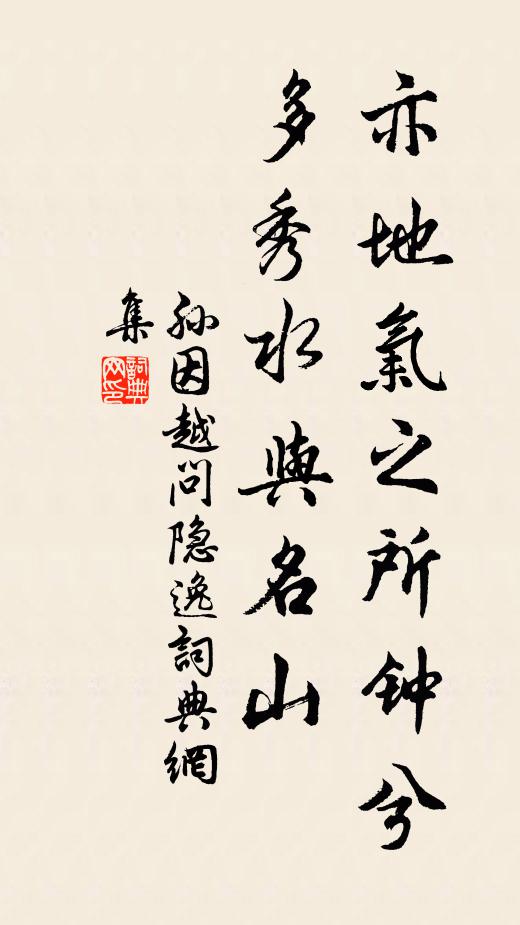 亦地氣之所钟兮
多秀水與名山
孙因越問隐逸詞典網
集
詞典网印